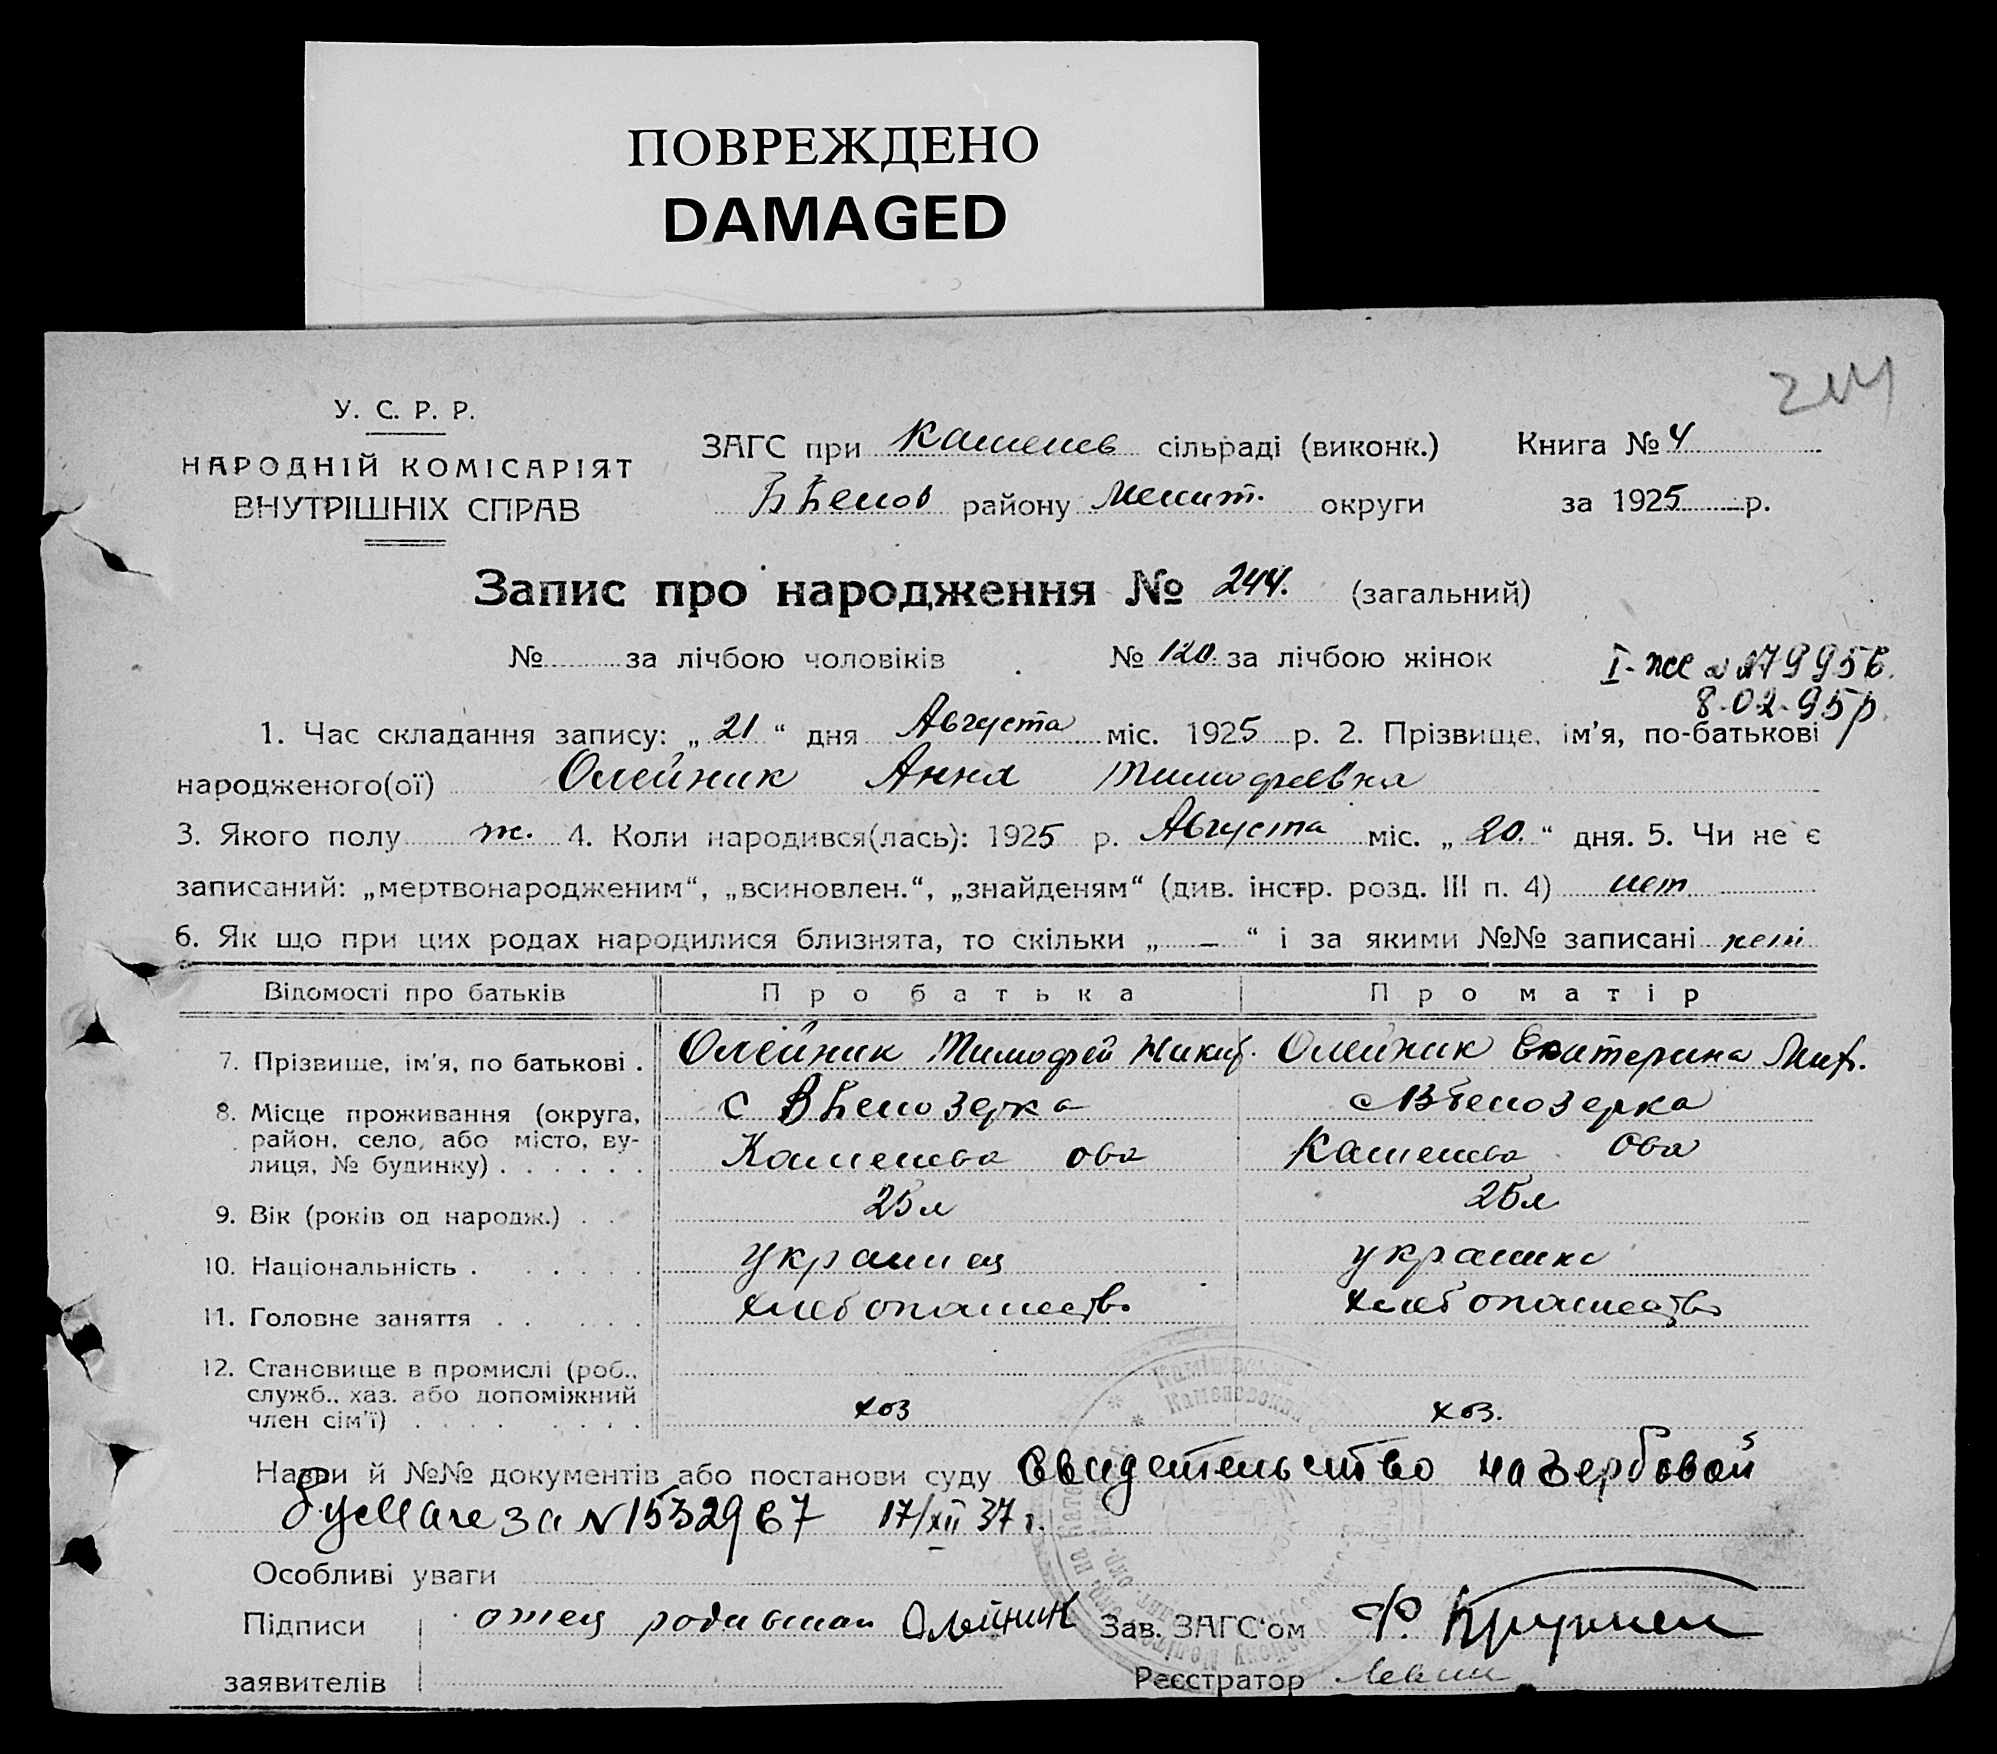 ПОВРЕЖДЕНО
DAMAGED
244
У. С. Р. Р.
НАРОДНІЙ КОМІСАРІЯТ
ВНУТРІШНІХ СПРАВ
ЗАГС при Каменев сільраді (виконк.) Книга № 4
району Мелит. округи за 1925 р.
Запис про народження № 244. (загальний)
№ за лічбою чоловіків № 120. за лічбою жінок
8.02.95р.
1. Час складання запису: „21“ дня Августа міс. 1925 р. 2. Прізвище, ім'я, по-батькові
народженого(ої) Олейник Анна Тимофеевна
3. Якого полу ж. 4. Коли народився(лась): 1925 р. Августа міс. „20.“ дня. 5. Чи не є
записаний: „мертвонародженим“, „всиновлен.“, „знайденям“ (див. інстр. розд. III п. 4) нет
6. Як що при цих родах народилися близнята, то скільки „ – “ і за якими №№ записані
Відомості про батьків Про батька Про матір
7. Прізвище, ім'я, по батькові . Олейник Тимофей Никиф. Олейник Екатерина Мит.
8. Місце проживання (округа,
район, село, або місто, ву-
лиця, № будинку) . . . . . .
с ВБелозерка с ВБелозерка
Каменева ова Каменева ова
9. Вік (років од народж.) . . 25 л 25 л
10. Національність . . . . . . украинец украинка
11. Головне заняття . . . . . . хлебопашество хлебопашество
12. Становище в промислі (роб.,
служб., хаз. або допоміжний
член сім'ї) . . . . . . . хоз хоз.
Назви й №№ документів або постанови суду Свидетельство на гербовой
бумаге за N 1532967 17/XII 37 г.
Особливі уваги
Підписи отец Олейник Зав. ЗАГС'ом
заявителів Реєстратор